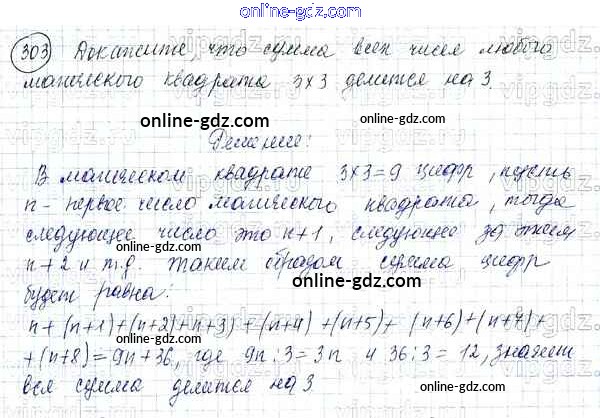 online-gdz.com
303 Докажите, что сумма всех чисел любого
магического квадрата 3×3 делится на 3.
online-gdz.com
Решение:
В магическом квадрате 3×3=9 цифр, пусть
n - первое число магического квадрата, тогда
online-gdz.com
следующее число это n+1, следующее за этим
n+2 и т.д. Таким образом сумма цифр
online-gdz.com
будет равна:
n+(n+1)+(n+2)+n+3)+(n+4)+(n+5)+(n+6)+(n+7)+
+(n+8)=9n+36, где 9n:3=3n и 36:3=12, значит
вся сумма делится на 3
online-gdz.com